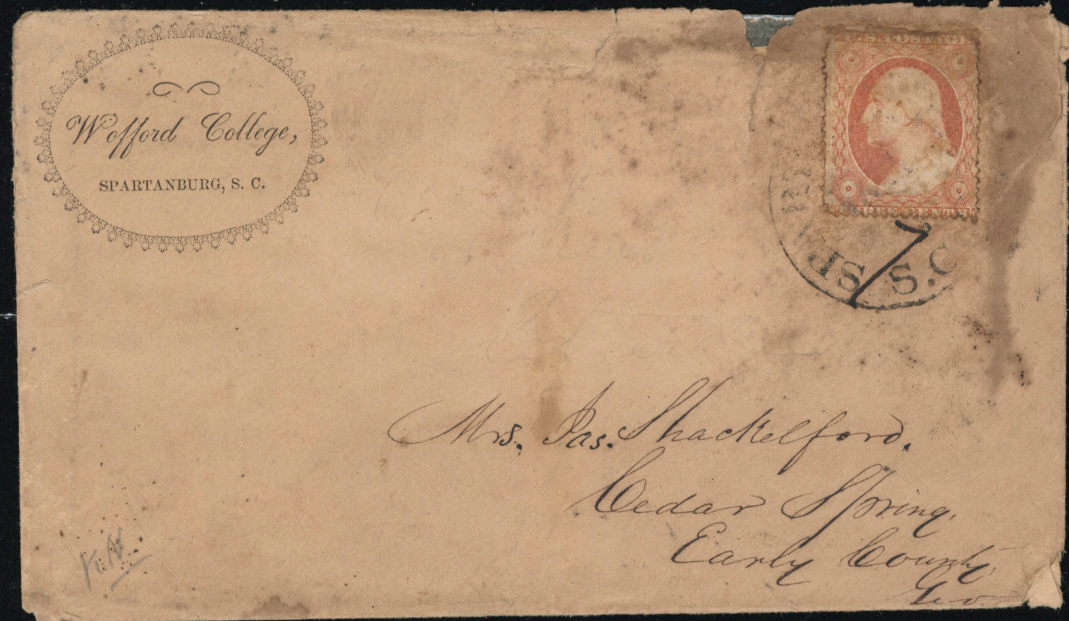 Wofford College,
SPARTANBURG, S. C.
U.S. POSTAGE
SPAR
S.C.
Mrs. Jas. Shackelford.
Cedar Spring,
Early County
Geo.